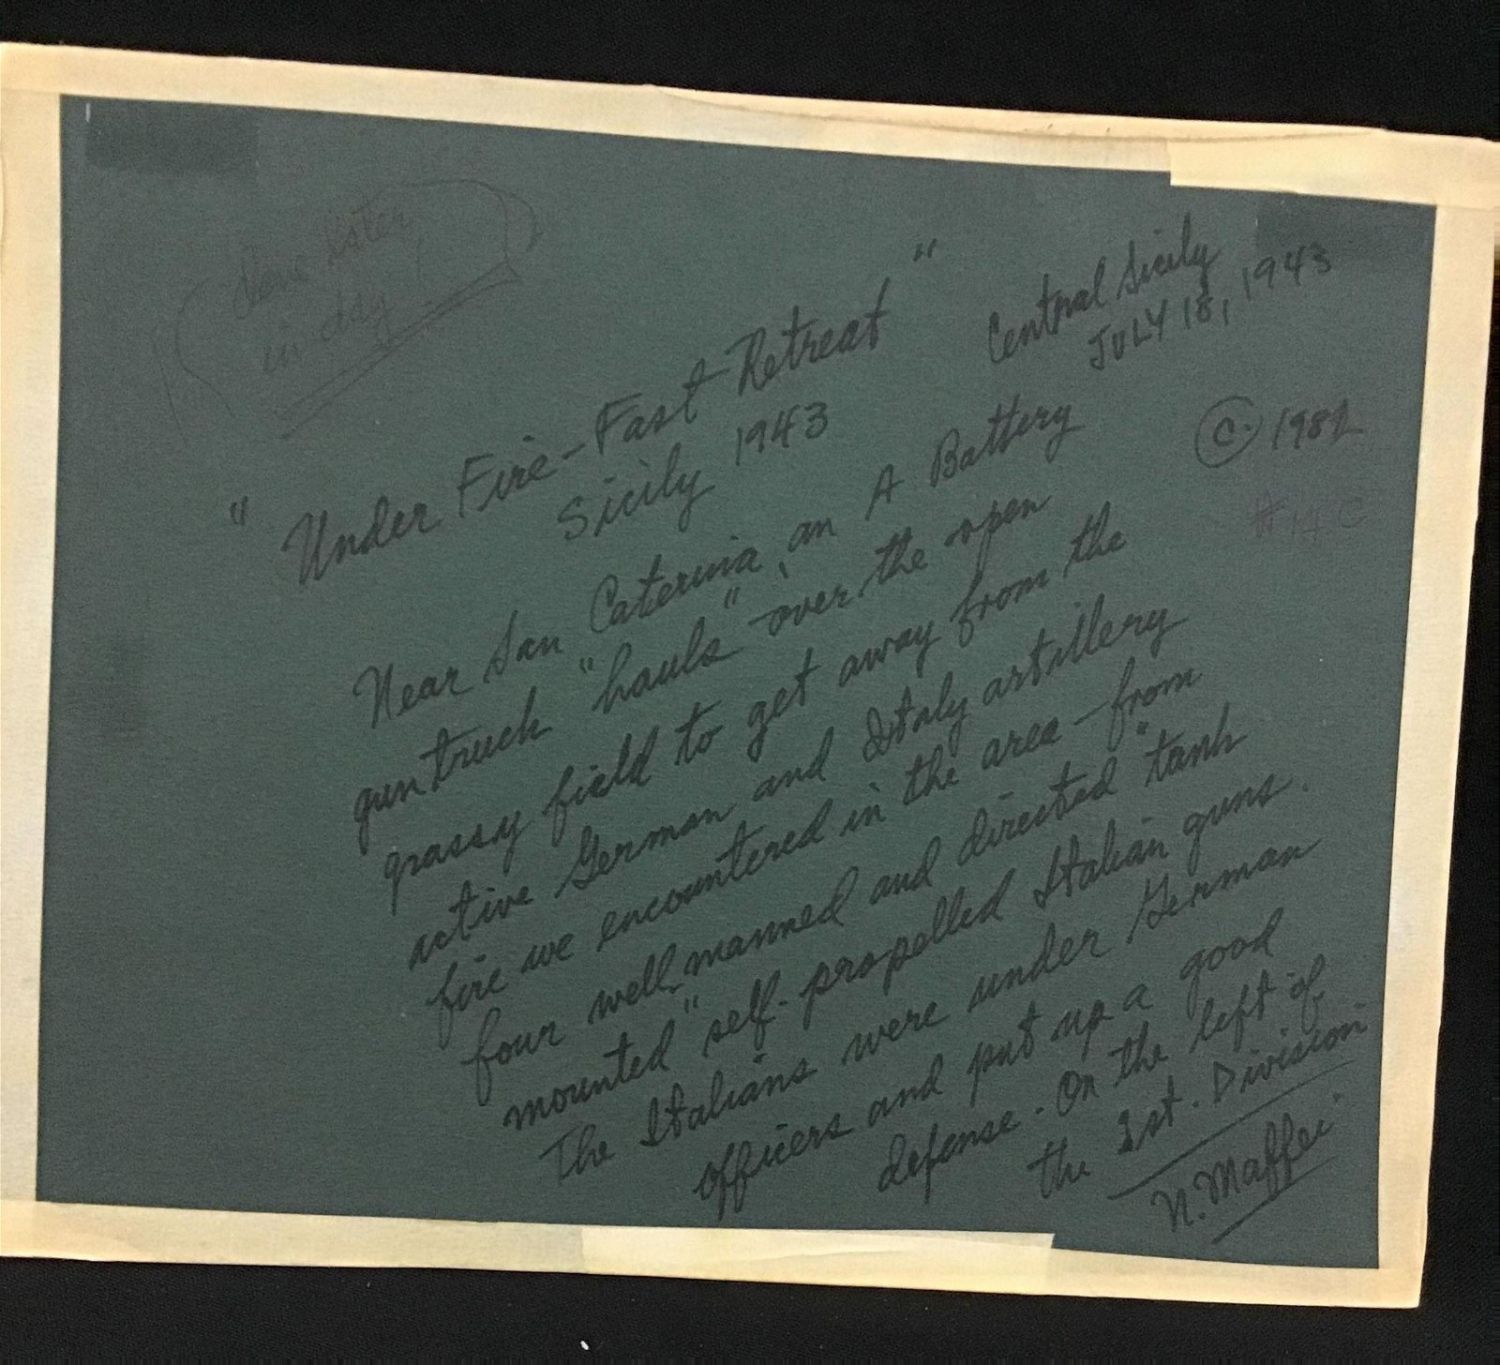 later
in day
"Under Fire-Fast Retreat"
Sicily 1943
Central Sicily
JULY 18, 1943
C. 1982
#14C
Near San Caterina, an A Battery
gun truck "hauls" over the open
grassy field to get away from the
active German and Italy artillery
fire we encountered in the area - from
four well-manned and directed "tank
mounted" self-propelled Italian guns.
The Italians were under German
officers and put up a good
defense. On the left of
the 1st. Division
N. Maffei.